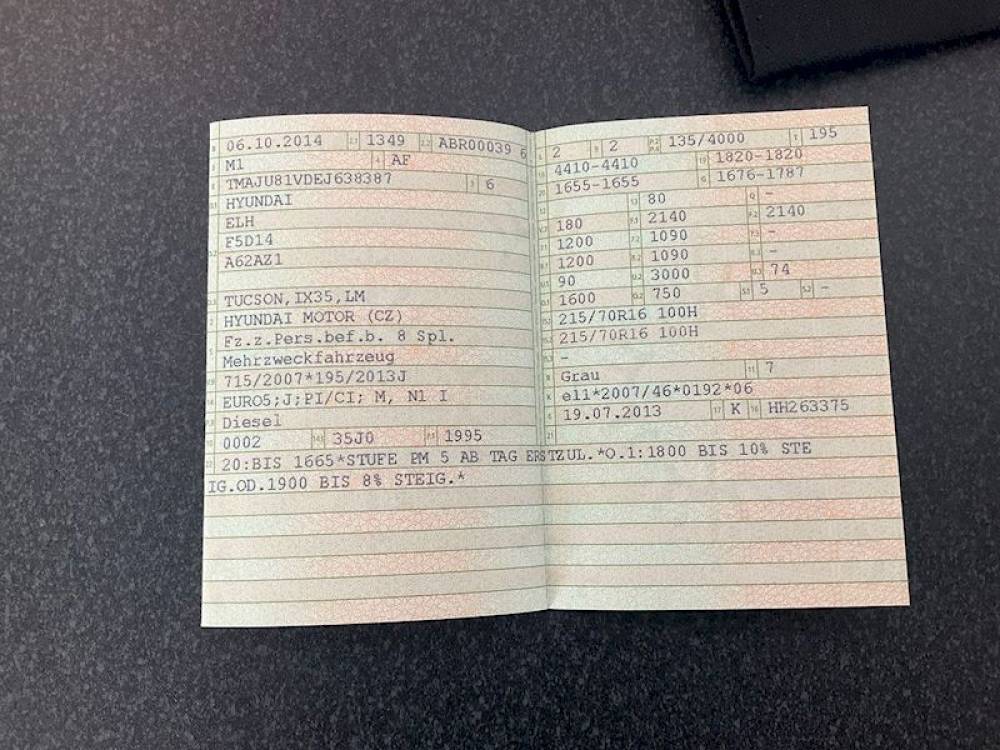 06.10.2014 1349 ABR00039 6
M1 AF
TMAJU81VDEJ638387 6
HYUNDAI
ELH
F5D14
A62AZ1
TUCSON,IX35,LM
HYUNDAI MOTOR (CZ)
Fz.z.Pers.bef.b. 8 Spl.
Mehrzweckfahrzeug
715/2007*195/2013J
EURO5;J;PI/CI; M, N1 I
Diesel
0002 35J0 1995
2 2 135/4000 195
4410-4410 1820-1820
1655-1655 1676-1787
80 -
180 2140 2140
1200 1090 -
1200 1090 -
90 3000 74
1600 750 5 -
215/70R16 100H
215/70R16 100H
-
Grau 7
e11*2007/46*0192*06
19.07.2013 K HH263375
20:BIS 1665*STUFE PM 5 AB TAG ERSTZUL.*O.1:1800 BIS 10% STE
IG.OD.1900 BIS 8% STEIG.*